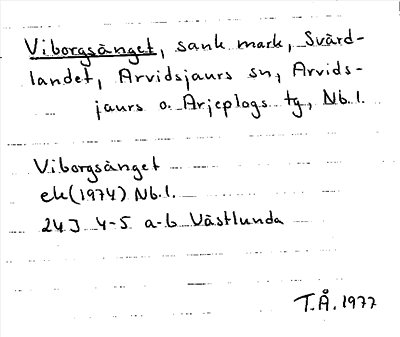 Viborgsänget, sank mark, Svärd-
landet, Arvidsjaurs sn, Arvids-
jaurs o. Arjeplogs tg, Nb. l.
Viborgsänget
ek (1974) Nb. l.
24J 4-5 a-b Västlunda
T.Å. 1977